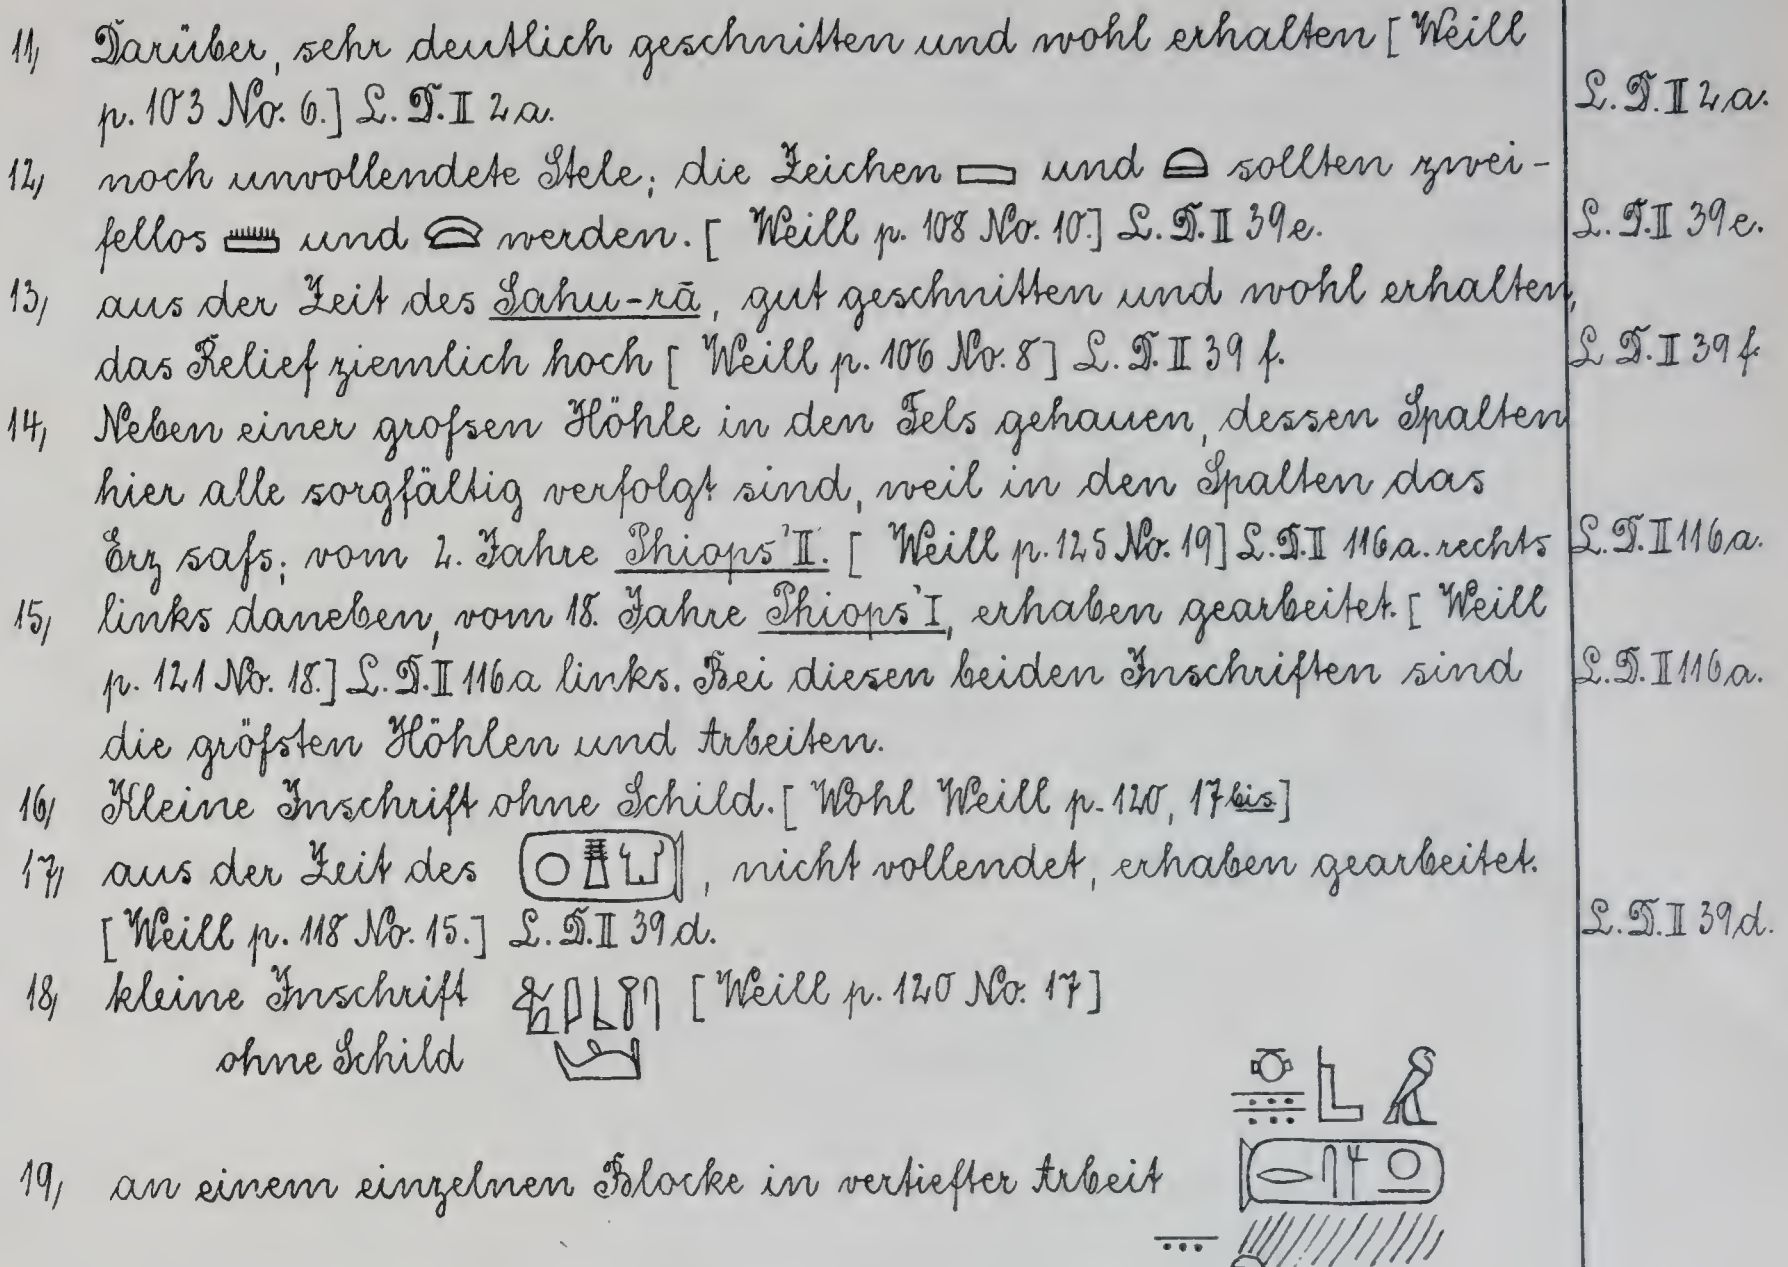 11, Darüber, sehr deutlich geschnitten und wohl erhalten [ Weill
p. 103 No. 6.] L. D. II 2 a. L. D. II 2 a.
12, noch unvollendete Stele; die Zeichen 𓈙 und 𓏏 sollten zwei-
fellos 𓏠 und 𓈍 werden. [ Weill p. 108 No. 10.] L. D. II 39 e. L. D. II 39 e.
13, aus der Zeit des Sahu-rā, gut geschnitten und wohl erhalten,
das Relief ziemlich hoch [ Weill p. 106 No. 8] L. D. II 39 f. L. D. II 39 f.
14, Neben einer grofsen Höhle in den Fels gehauen, dessen Spalten
hier alle sorgfältig verfolgt sind, weil in den Spalten das
Erz safs; vom 2. Jahre Phiops' II. [ Weill p. 125 No. 19] L. D. II 116 a. rechts L. D. II 116 a.
15, links daneben, vom 18. Jahre Phiops' I, erhaben gearbeitet. [ Weill
p. 121 No. 18.] L. D. II 116 a links. Bei diesen beiden Inschriften sind L. D. II 116 a.
die gröfsten Höhlen und Arbeiten.
16, Kleine Inschrift ohne Schild. [ Wohl Weill p. 120, 17 bis]
17, aus der Zeit des 𓍹𓇳𓊽𓂓𓍺, nicht vollendet, erhaben gearbeitet.
[ Weill p. 118 No. 15.] L. D. II 39 d. L. D. II 39 d.
18, kleine Inschrift [ Weill p. 120 No. 17]
ohne Schild
19, an einem einzelnen Blocke in vertiefter Arbeit